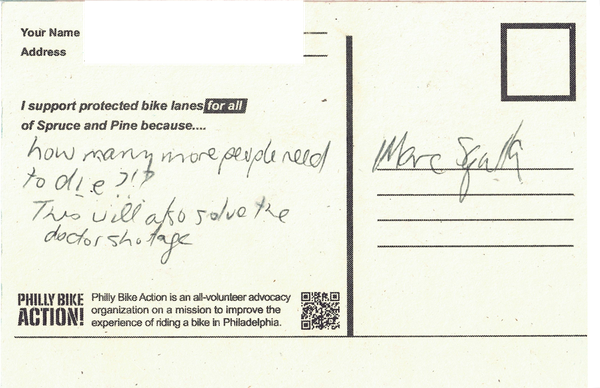 Your Name
Address
I support protected bike lanes for all
of Spruce and Pine because....
how many more people need
to die?!?
This will also solve the
doctor shotage
Marc
PHILLY BIKE
ACTION!
Philly Bike Action is an all-volunteer advocacy
organization on a mission to improve the
experience of riding a bike in Philadelphia.